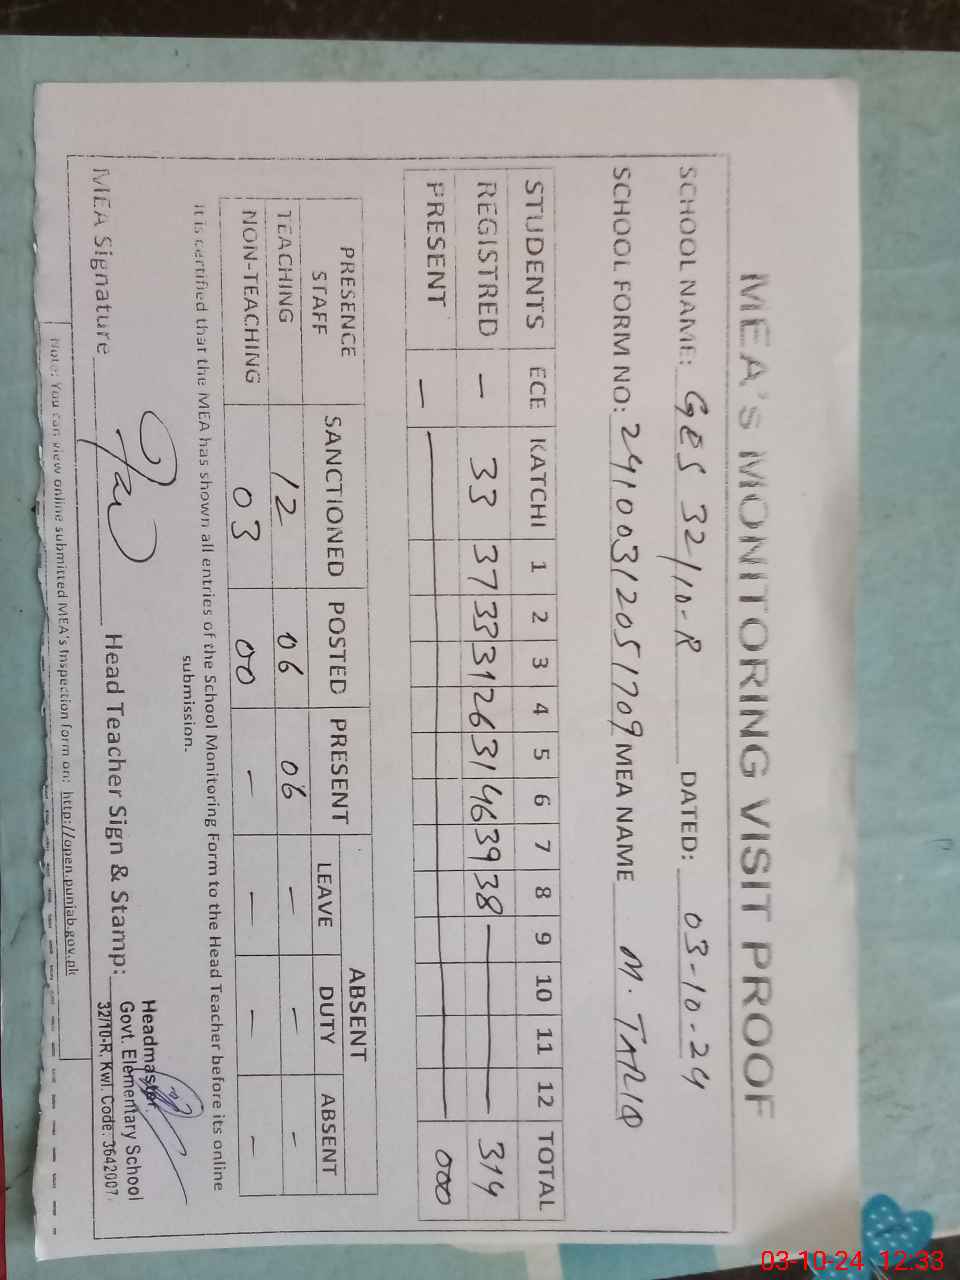 MEA'S MONITORING VISIT PROOF
SCHOOL NAME: GES 32/10-R DATED: 03-10-24
SCHOOL FORM NO: 24100312051709 MEA NAME M. TARIQ
STUDENTS ECE KATCHI 1 2 3 4 5 6 7 8 9 10 11 12 TOTAL
REGISTRED — 33 37 33 31 26 31 46 39 38 — 314
PRESENT — — 000
PRESENCE STAFF SANCTIONED POSTED PRESENT ABSENT
LEAVE DUTY ABSENT
TEACHING 12 06 06 — — —
NON-TEACHING 03 00 — — — —
It is certified that the MEA has shown all entries of the School Monitoring Form to the Head Teacher before its online
submission.
MEA Signature Head Teacher Sign & Stamp:
Headmaster
Govt. Elementary School
32/10-R, Kwl. Code: 3642007
Note: You can view online submitted MEA's Inspection form on: http://open.punjab.gov.pk
03-10-24 12:33